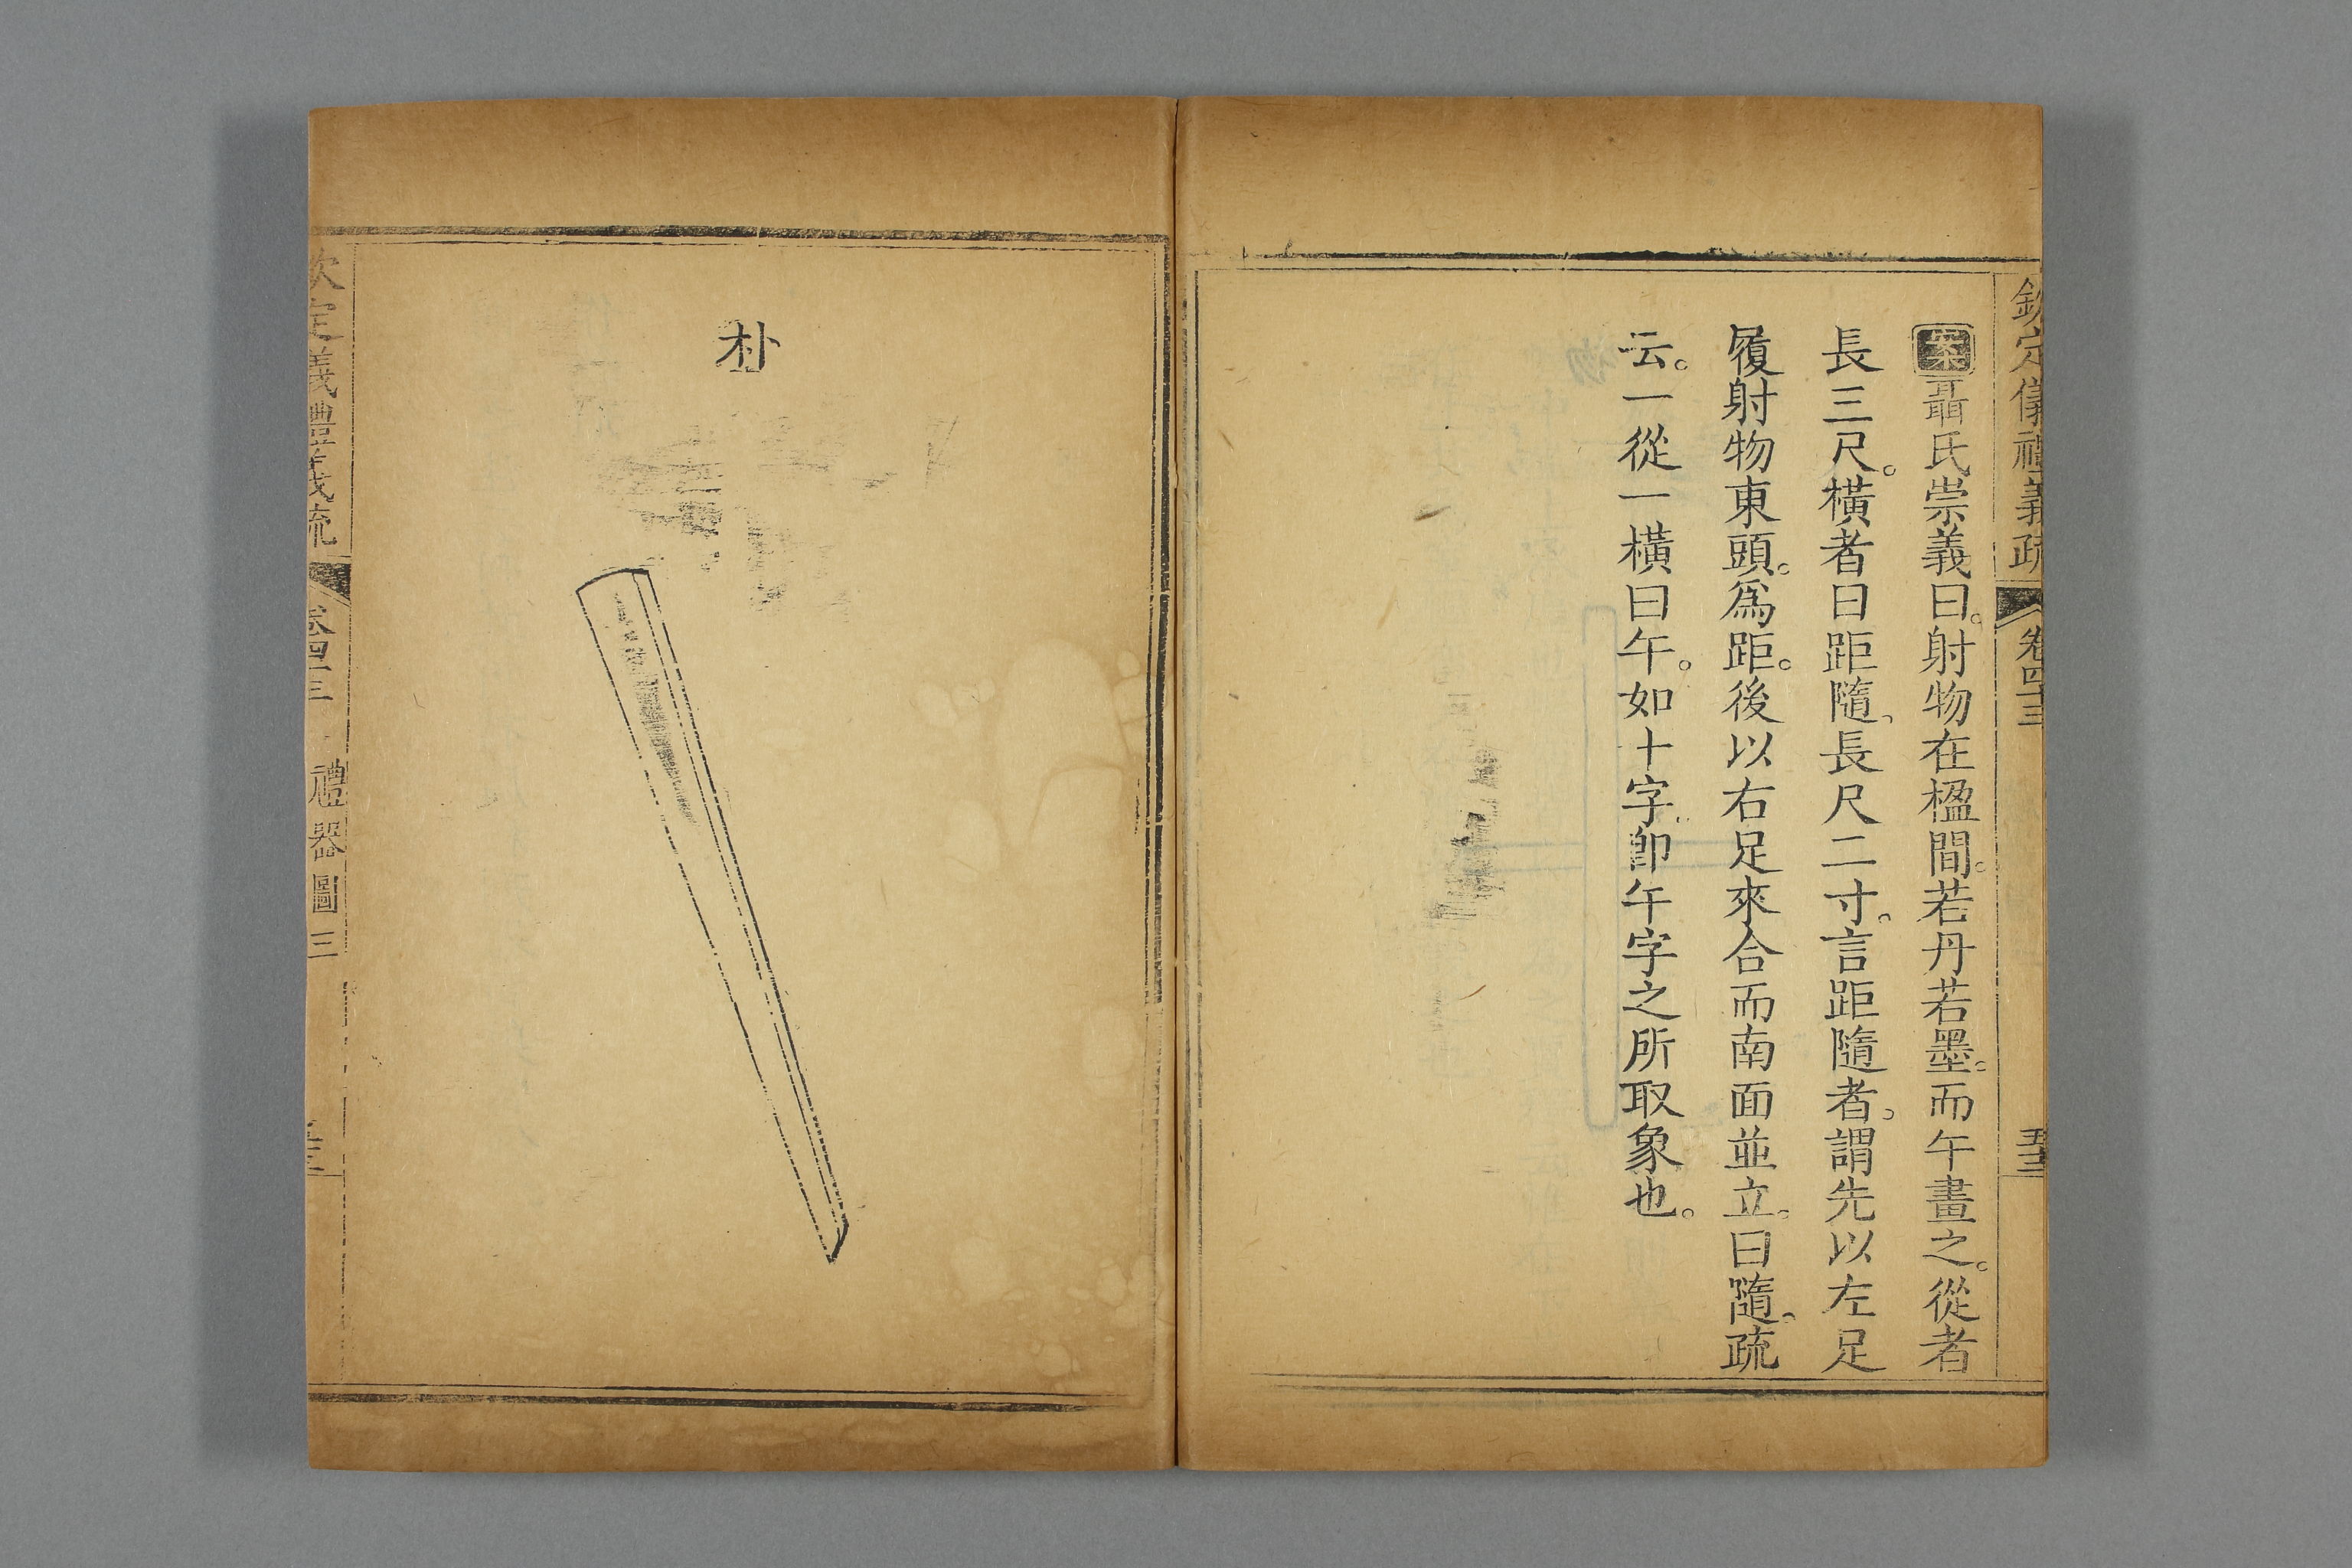 欽定儀禮義疏 卷四十三 五十三
案聶氏崇義曰。射物在楹間。若丹若墨。而午畫之。從者
長三尺。橫者曰距隨。長尺二寸。言距隨者。謂先以左足
履射物東頭。爲距。後以右足來合而南面並立。曰隨。疏
云。一從一橫曰午。如十字。卽午字之所取象也。
朴
欽定義禮義疏 卷四十三 禮器圖三